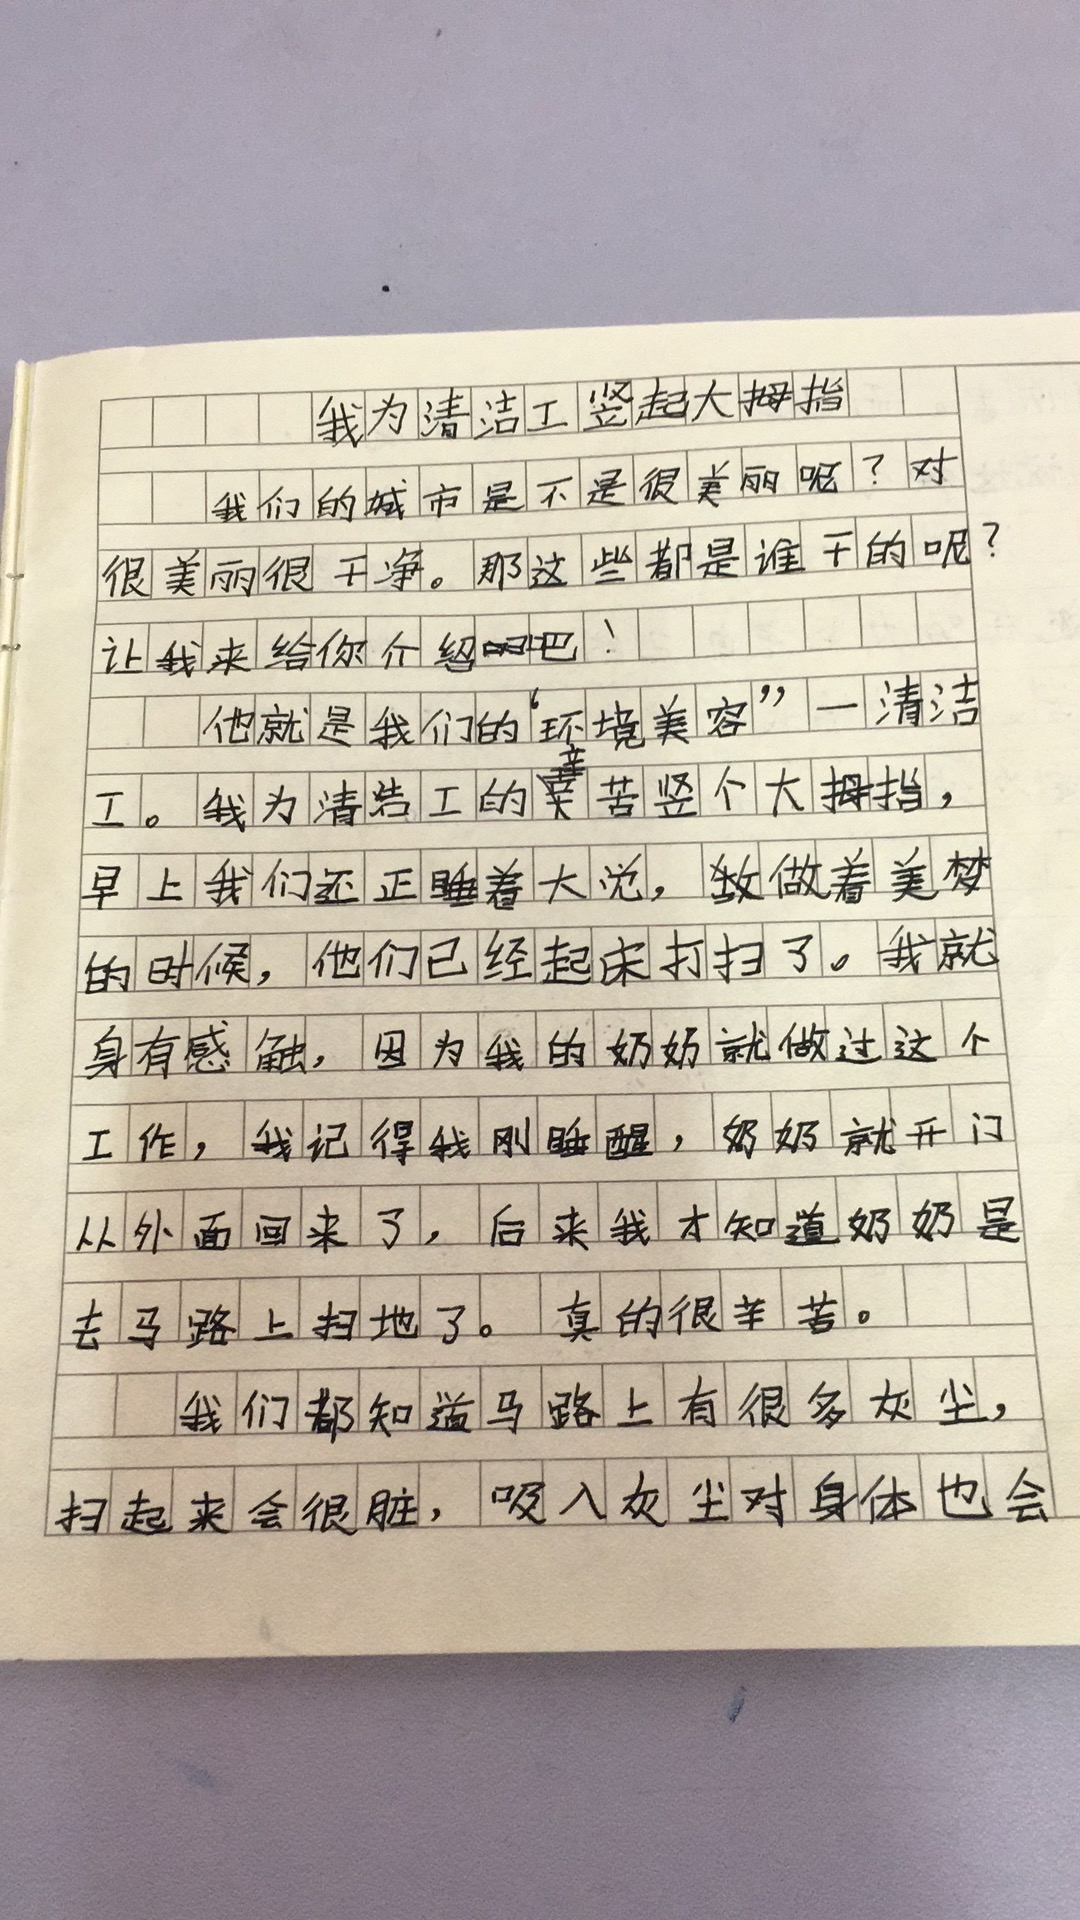 我为清洁工竖起大拇指
我们的城市是不是很美丽呢？对
很美丽很干净。那这些都是谁干的呢？
让我来给你介绍吧！
他就是我们的“环境美容”一清洁
工。我为清洁工的辛苦竖个大拇指，
早上我们还正睡着大觉，做着美梦
的时候，他们已经起床打扫了。我就
身有感触，因为我的奶奶就做过这个
工作，我记得我刚睡醒，奶奶就开门
从外面回来了，后来我才知道奶奶是
去马路上扫地了。真的很辛苦。
我们都知道马路上有很多灰尘，
扫起来会很脏，吸入灰尘对身体也会